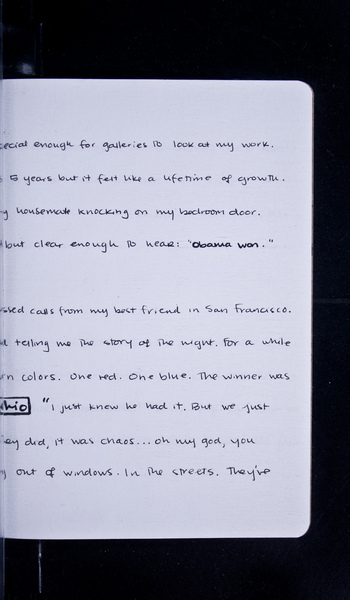 ecial enough for galleries to look at my work.
5 years but it felt like a lifetime of growth.
y housemate knocking on my bedroom door.
but clear enough to hear: "Obama won."
ssed calls from my best friend in San Francisco.
d telling me the story of the night. For a while
n colors. One red. One blue. The winner was
hio "I just knew he had it. But we just
ey did, it was chaos... oh my god, you
g out of windows. In the streets. They've